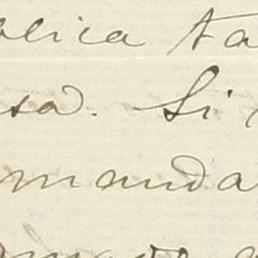 blica ta
sa. Si
omanda